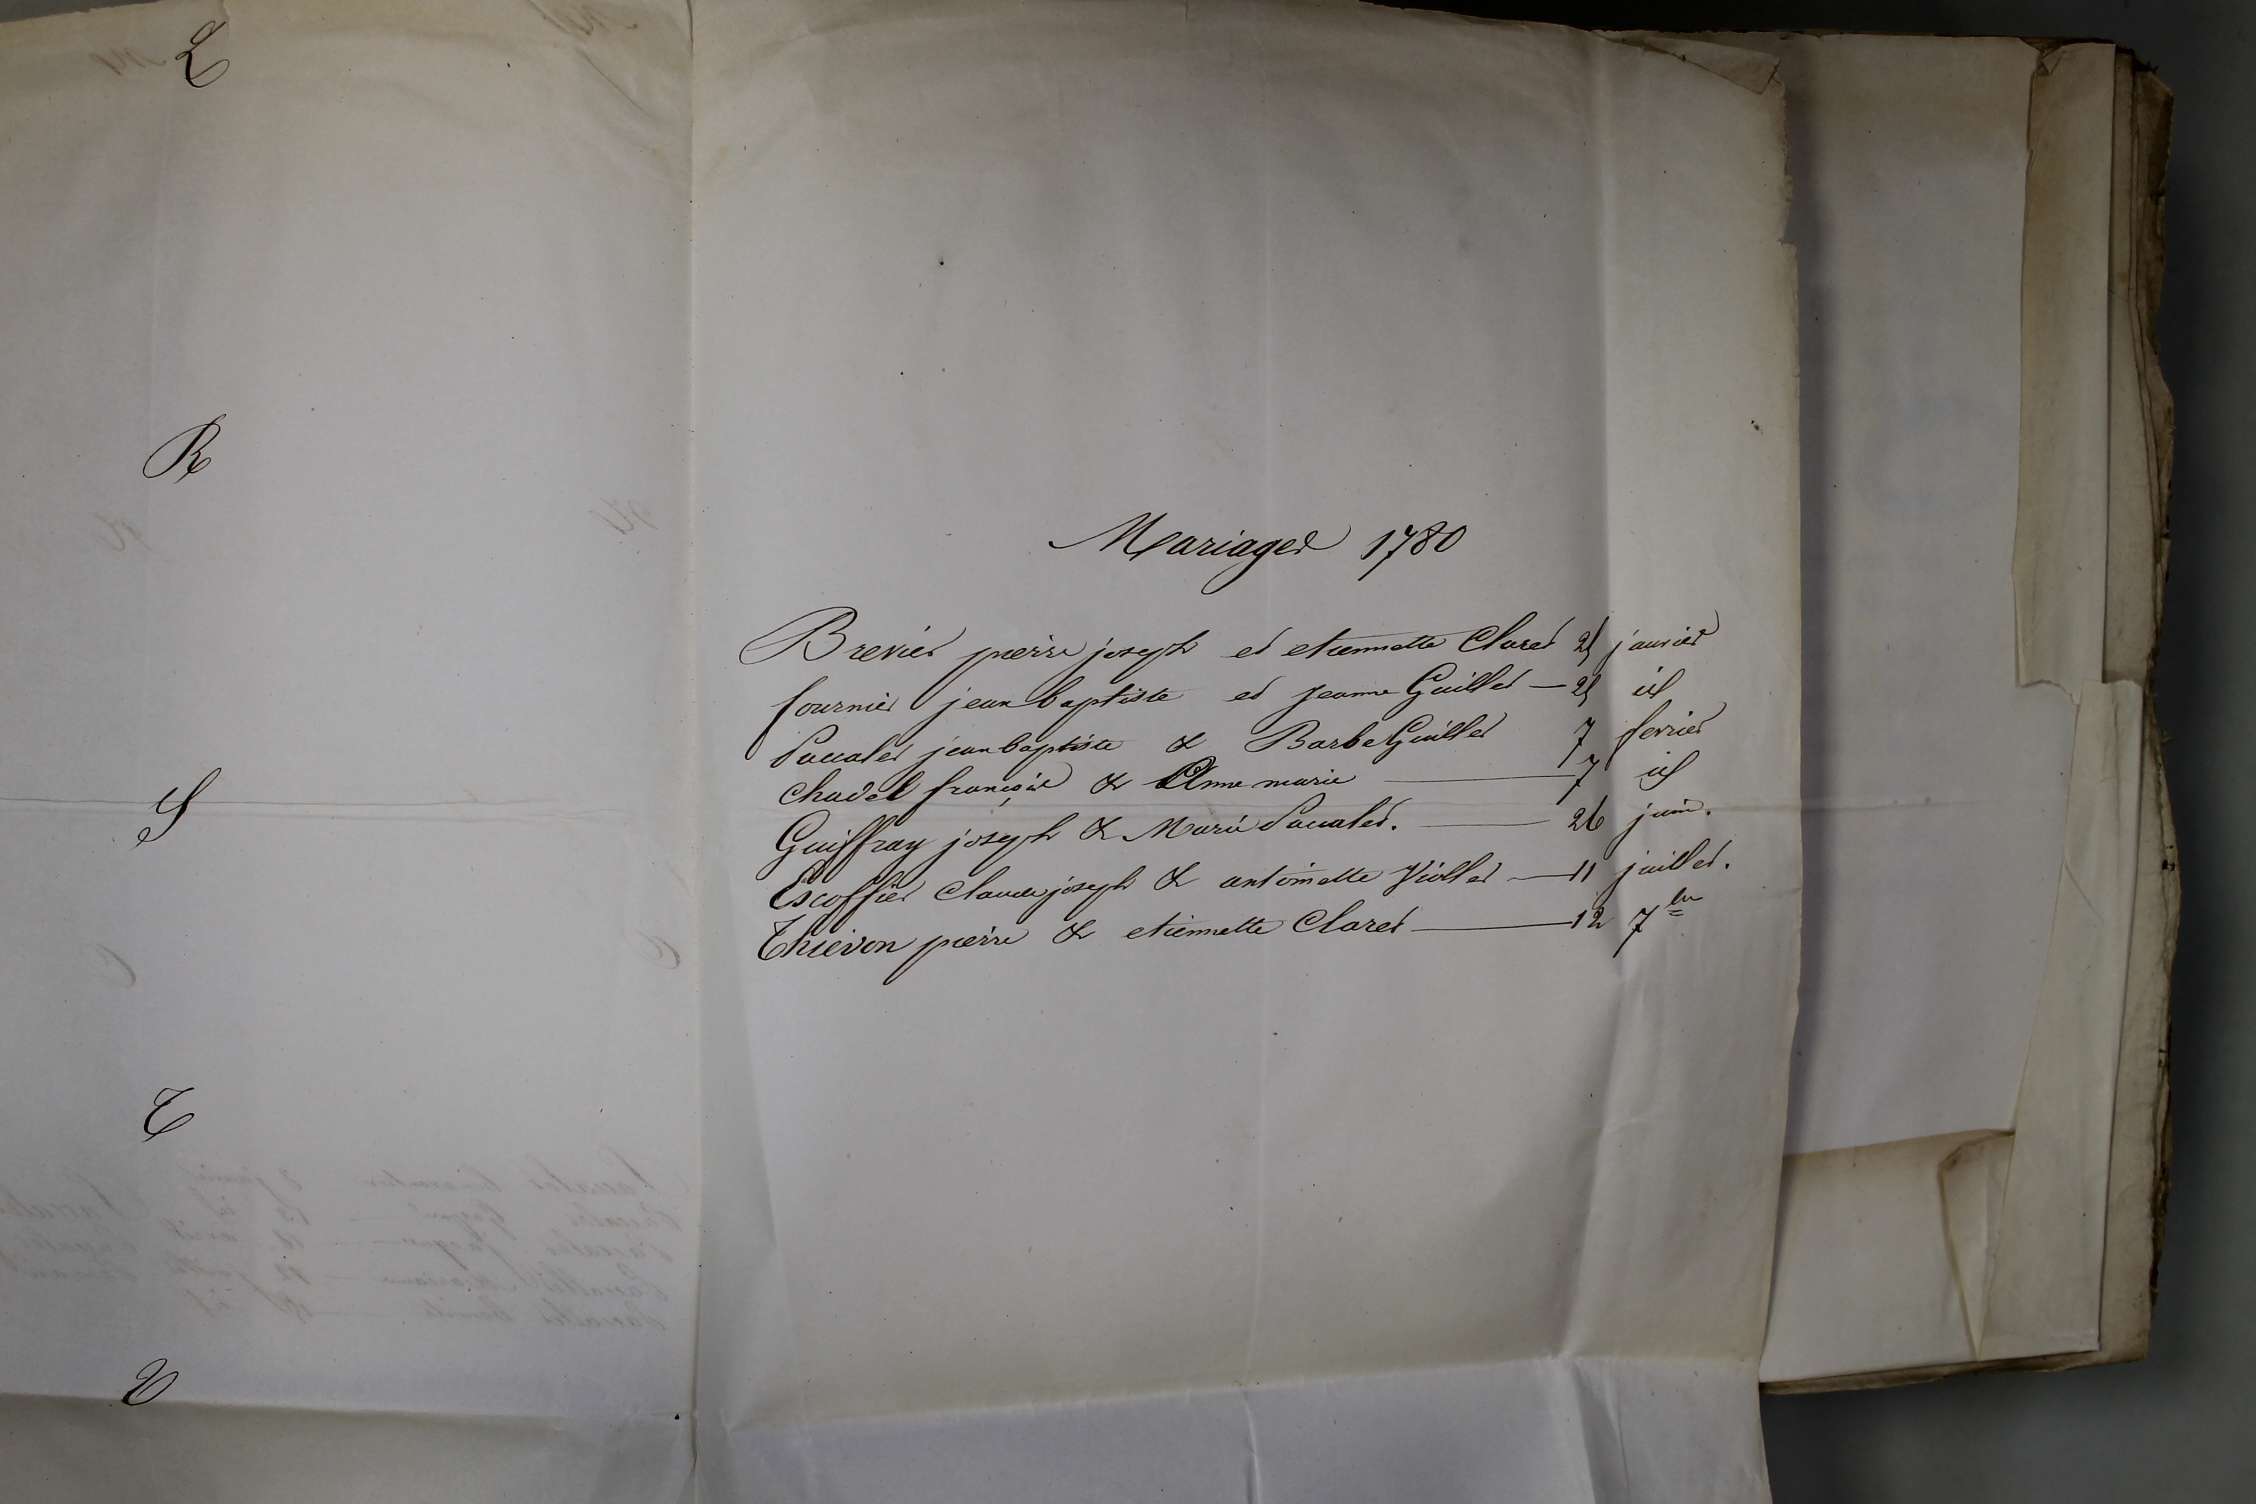 L
R
S
T
V
Mariages 1780
Brevier pierre joseph et etiennette Claret 25 janvier
fournier jean baptiste et jeanne Guillet — 25 id
Paccalet jean baptiste & Barbe Guillet 7 fevrier
Chadel françois & Anne marie — 7 id
Guiffray joseph & Marie Paccalet. — 26 juin.
Escoffier Claude joseph & antoinette Viollet — 11 juillet.
Thievon pierre & etiennette Claret — 12 7bre